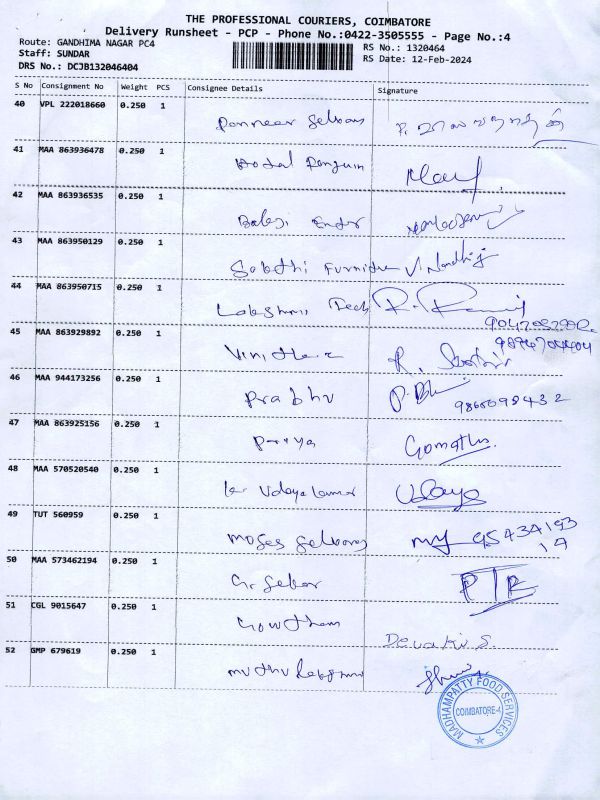 THE PROFESSIONAL COURIERS, COIMBATORE
Delivery Runsheet - PCP - Phone No.:0422-3505555 - Page No.:4
Route: GANDHIMA NAGAR PC4
RS No.: 1320464
Staff: SUNDAR
RS Date: 12-Feb-2024
DRS No.: DCJB132046404
S No Consignment No Weight PCS Consignee Details Signature
40 VPL 222018660 0.250 1 Panneer Selvam
41 MAA 863936478 0.250 1 Hotal Penguin
42 MAA 863936535 0.250 1 Balaji
43 MAA 863950129 0.250 1 Sakthi Furniture V. Nandhij
44 MAA 863950715 0.250 1 Lakshmi Tech
45 MAA 863929892 0.250 1
46 MAA 944173256 0.250 1 Prabhu
47 MAA 863925156 0.250 1 Priya Gomathi
48 MAA 570520540 0.250 1 Udaya kumar Udaya
49 TUT 560959 0.250 1 Moses Selvam 95434193
14
50 MAA 573462194 0.250 1 G. Sekar
51 CGL 9015647 0.250 1 Gowtham Devaki S.
52 GMP 679619 0.250 1 Muthu
MADHAMPATTY FOOD SERVICES
COIMBATORE-4